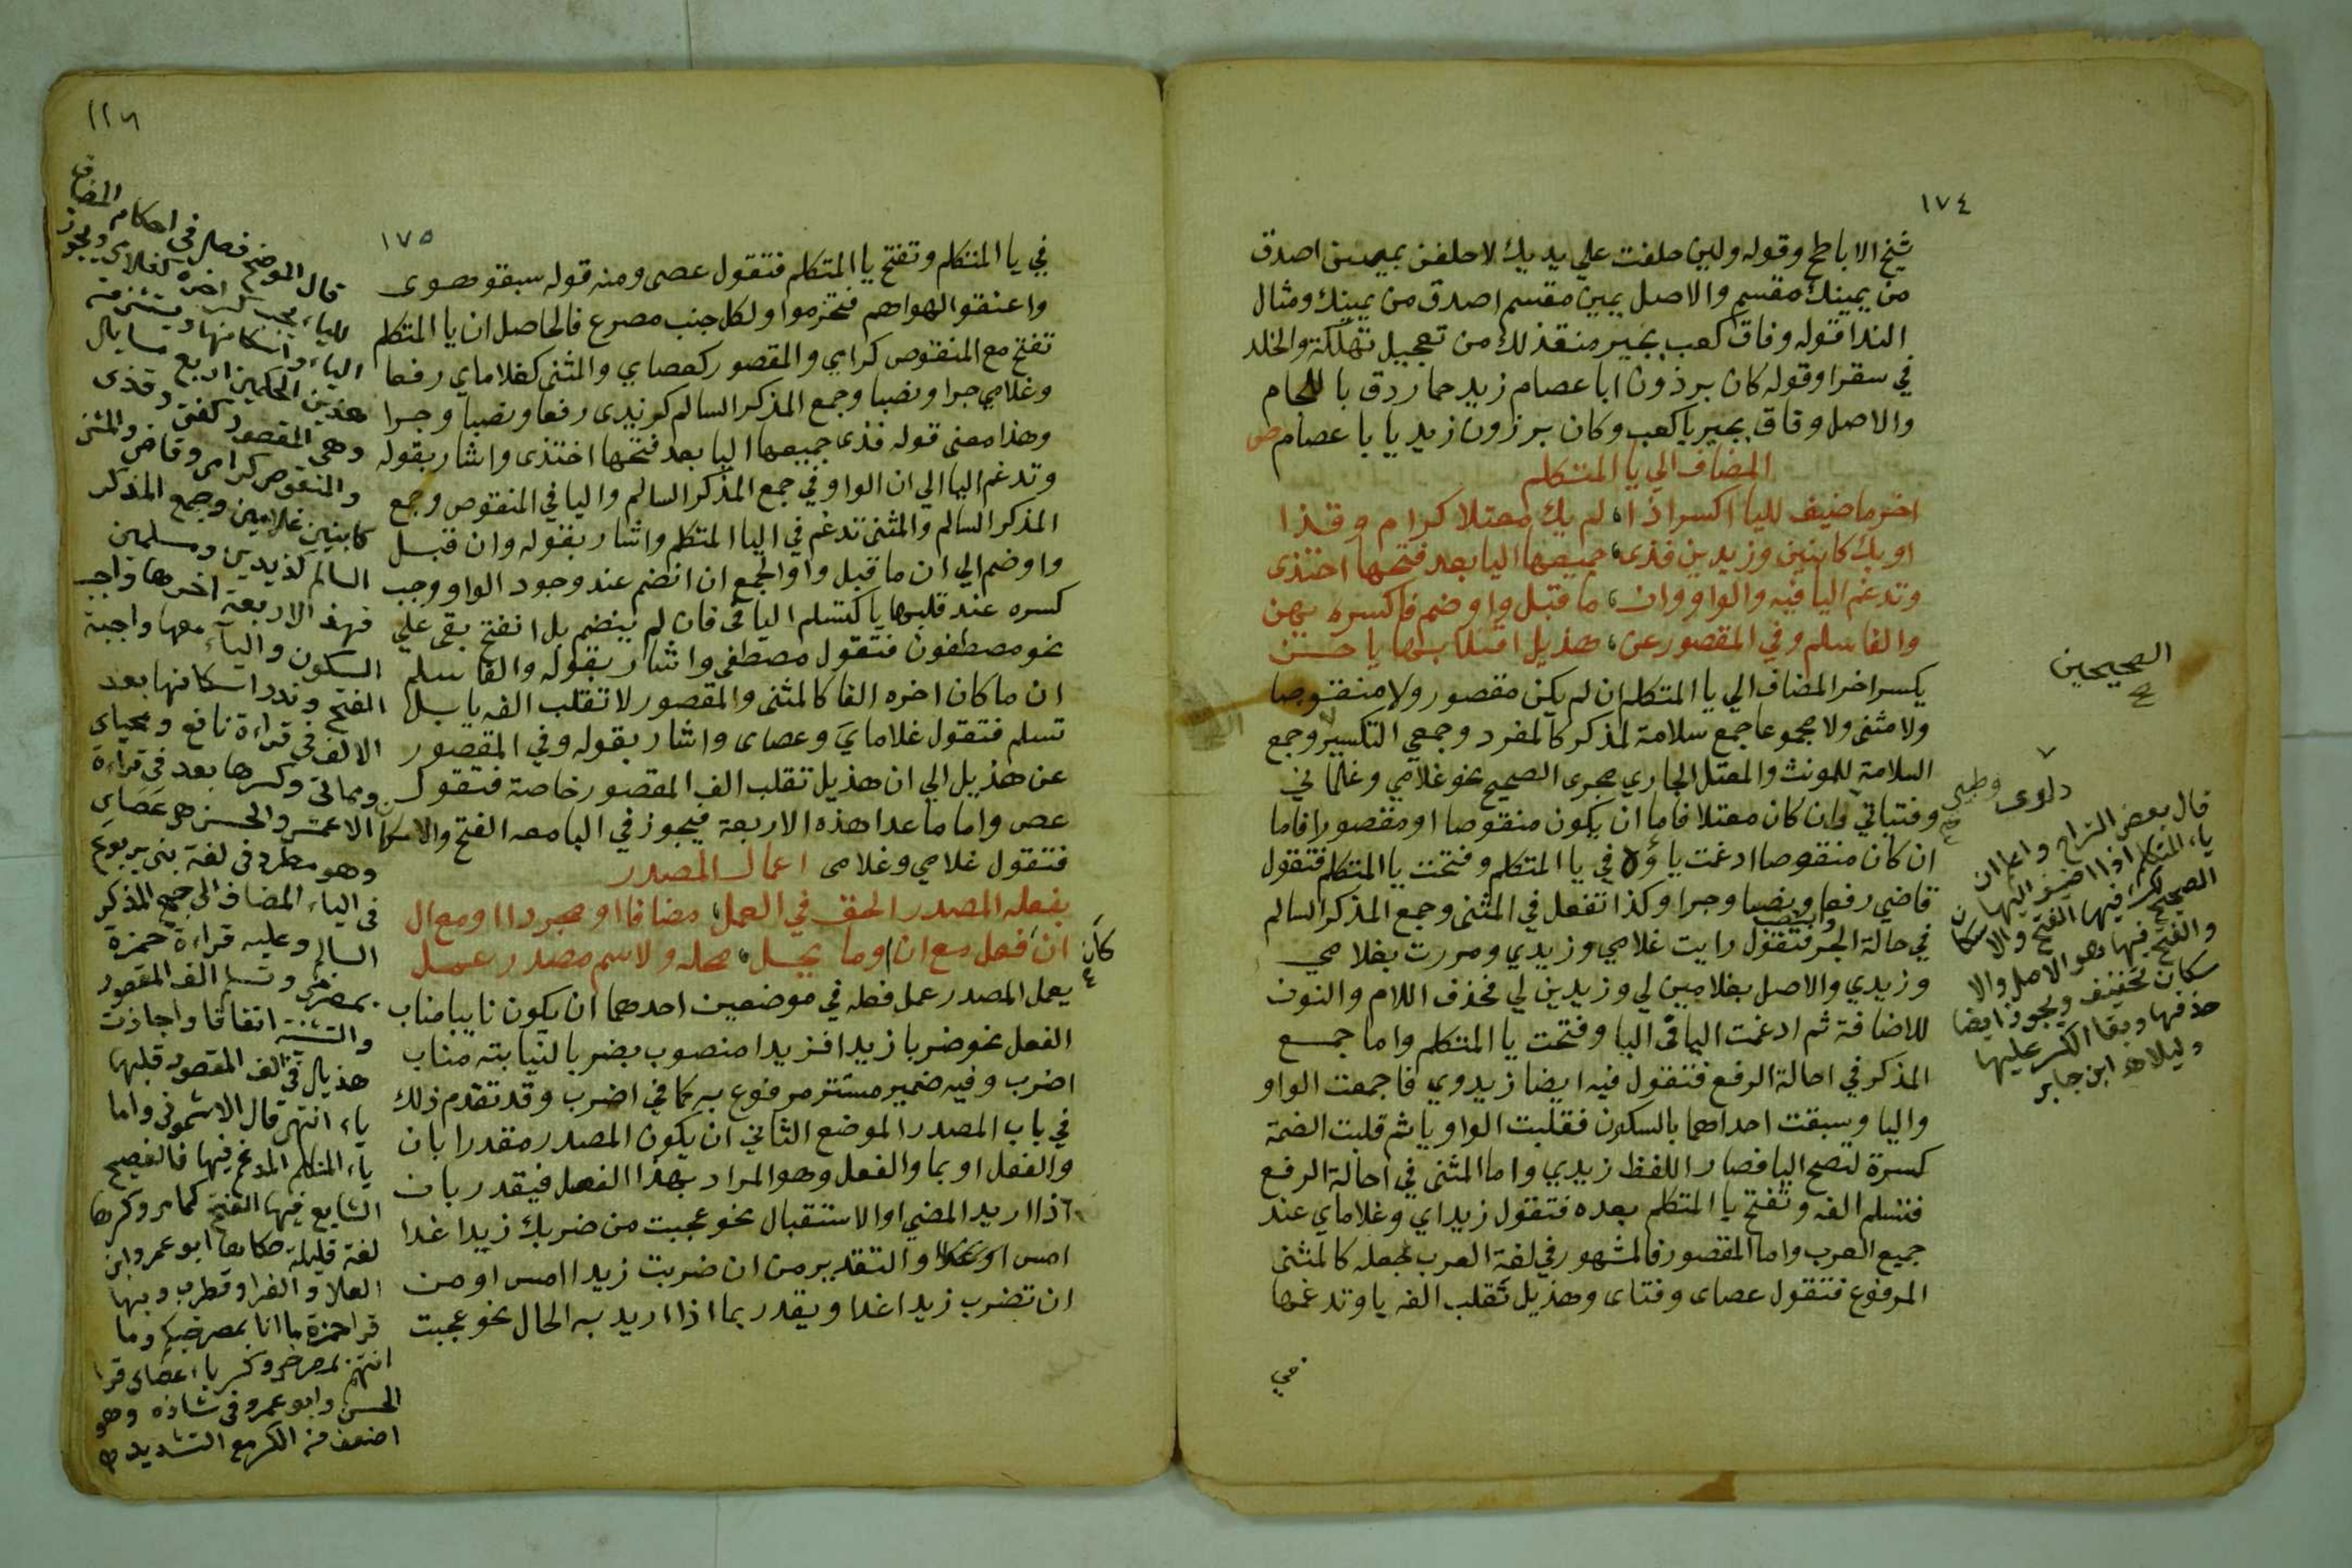 ١٧٤
شيخ الاباطح وقوله ولين حلفت علي يديك لاحلفن بيمين اصدق
من يمينك مقسم والاصل بيمين مقسم اصدق من يمينك ومثال
الندا قوله وفاق كعب بجير منقذ لك من تعجيل تهلكة والخلد
في سقرا وقوله كان برذون ابا عصام زيد حمار دق باللجام
والاصل وفاق بجير يا كعب وكان برزون زيد يا با عصام ص
المضاف الي يا المتكلم
اخر ما ضيف لليا اكسر اذا لم يك معتلا كرام وقذا
او يك كابنين وزيدين فذي جميعها اليا بعد فتحها احتذى
وتدغم اليا فيه والواو وان ما قبل واو ضم فاكسره يهن
والفا سلم وفي المقصور عن هذيل انقلابها يا حسن
يكسر اخر المضاف الي يا المتكلم ان لم يكن مقصور ولا منقوصا
ولا مثنى ولا مجموعا جمع سلامة لمذكر كالمفرد وجمعي التكسير وجمع
السلامة للمونث والمعتل الجاري مجرى الصحيح نحو غلامي وغلماني
وفتياتي وان كان معتلا فاما ان يكون منقوصا او مقصورا فاما
ان كان منقوصا ادغمت ياؤه في يا المتكلم وفتحت يا المتكلم فتقول
قاضي رفعا ونصبا وجرا وكذا تفعل في المثنى وجمع المذكر السالم
في حالة الجر والنصب فتقول رايت غلامي وزيدي ومررت بغلامي
وزيدي والاصل بغلامين لي وزيدين لي فحذف اللام والنون
للاضافة ثم ادغمت اليا في اليا وفتحت يا المتكلم واما جمع
المذكر في احالة الرفع فتقول فيه ايضا زيدوي فاجمعت الواو
واليا وسبقت احداهما بالسكون فقلبت الواو يا ثم قلبت الضمة
كسرة لتصح اليا فصار اللفظ زيدي واما المثنى في احالة الرفع
فتسلم الفه وتفتح يا المتكلم بعده فتقول زيداي وغلاماي عند
جميع العرب واما المقصور فالمشهور في لغة العرب جعله كالمثنى
المرفوع فتقول عصاى وفتاى وهذيل تقلب الفه يا وتدغمها
في
الصحيحين
دلوى وظبي
قال بعض الشراح واعلم ان
ياء المتكلم اذا اضيف اليها
الصحيح كسر فيها الفتح والاسكان
والفتح فيها هو الاصل والا
سكان تخفيف ويجوز ايضا
حذفها وبقا الكسر عليها
دليلا ه ابن جابر
١١٦
١٧٥
في يا المتكلم وتفتح يا المتكلم فتقول عصى ومنه قوله سبقو هوى
واعنقوا لهواهم فتخرموا ولكل جنب مصرع فالحاصل ان يا المتكلم
تفتح مع المنقوص كرامي والمقصور كعصاي والمثنى كغلاماي رفعا
وغلامي جرا ونصبا وجمع المذكر السالم كزيدى رفعا ونصبا وجرا
وهذا معنى قوله فذي جميعها اليا بعد فتحها احتذى واشار بقوله
وتدغم اليا الي ان الواو في جمع المذكر السالم واليا في المنقوص وجمع
المذكر السالم والمثنى تدغم في اليا المتكلم واشار بقوله وان قبل
واو ضم الي ان ما قبل واو الجمع ان انضم عند وجود الواو وجب
كسره عند قلبها يا كتسلم اليا في فان لم ينضم بل انفتح بقى علي
نحو مصطفون فتقول مصطفي واشار بقوله والفا سلم
ان ما كان اخره الفا كالمثنى والمقصور لا تقلب الفه يا بل
تسلم فتقول غلاماي وعصاى واشار بقوله وفي المقصور
عن هذيل الي ان هذيل تقلب الف المقصور خاصة فتقول
عصى واما ما عدا هذه الاربعة فيجوز في اليا معه الفتح والاسكان
فتقول غلامي وغلامى اعمال المصدر
بفعله المصدر الحق في العمل مضافا او مجردا او مع ال
ان فعل مع ان او ما يحل محله ولاسم مصدر عمل
كان
يعمل المصدر عمل فعله في موضعين احدهما ان يكون نايبا مناب
الفعل نحو ضربا زيدا فزيدا منصوب بضربا لنيابته مناب
اضرب وفيه ضمير مستتر مرفوع به كما في اضرب وقد تقدم ذلك
في باب المصدر الموضع الثاني ان يكون المصدر مقدرا بان
والفعل او بما والفعل وهو المراد بهذا الفصل فيقدر بان
اذا اريد المضي او الاستقبال نحو عجبت من ضربك زيدا غدا
امس او غدا والتقدير من ان ضربت زيدا امس او من
ان تضرب زيدا غدا ويقدر بما اذا اريد به الحال نحو عجبت
قال الموضح فصل في احكام المضاف
للياء يجب كسر اخره كغلامي ويجوز
الياء واسكانها ويستثنى من
هذين الحكمين اربع مسايل
وهي المقصور كفتى وقذى
والمنقوص كرامى وقاضى والمثنى
كابنين وغلامين وجمع المذكر
السالم كزيدين ومسلمين
فهذه الاربعة اخرها واجب
السكون والياء معها واجبة
الفتح وندر اسكانها بعد
الالف في قراءة نافع ومحياى
ومماتى وكسرها بعد في قراءة
الاعمش والحسن هى عصاي
وهو مطرد في لغة بني يربوع
في الياء المضاف الى جمع المذكر
السالم وعليه قراءة حمزة
بمصرخى وتسلم الف المقصور
والتثنية اتفاقا واجازت
هذيل في الف المقصور قلبها
ياء انتهى قال الاشموني واما
ياء المتكلم المدغم فيها فالفصيح
الشايع فيها الفتح كما مر وكسرها
لغة قليلة حكاها ابو عمرو ابن
العلاو الفراو قطرب وبها
قرا حمزة ما انا بمصرخكم وما
انتم بمصرخى وكسر يا عصاى قرا
الحسن وابو عمرو في شاذه وهو
اضعف من الكسر مع التشديد ه